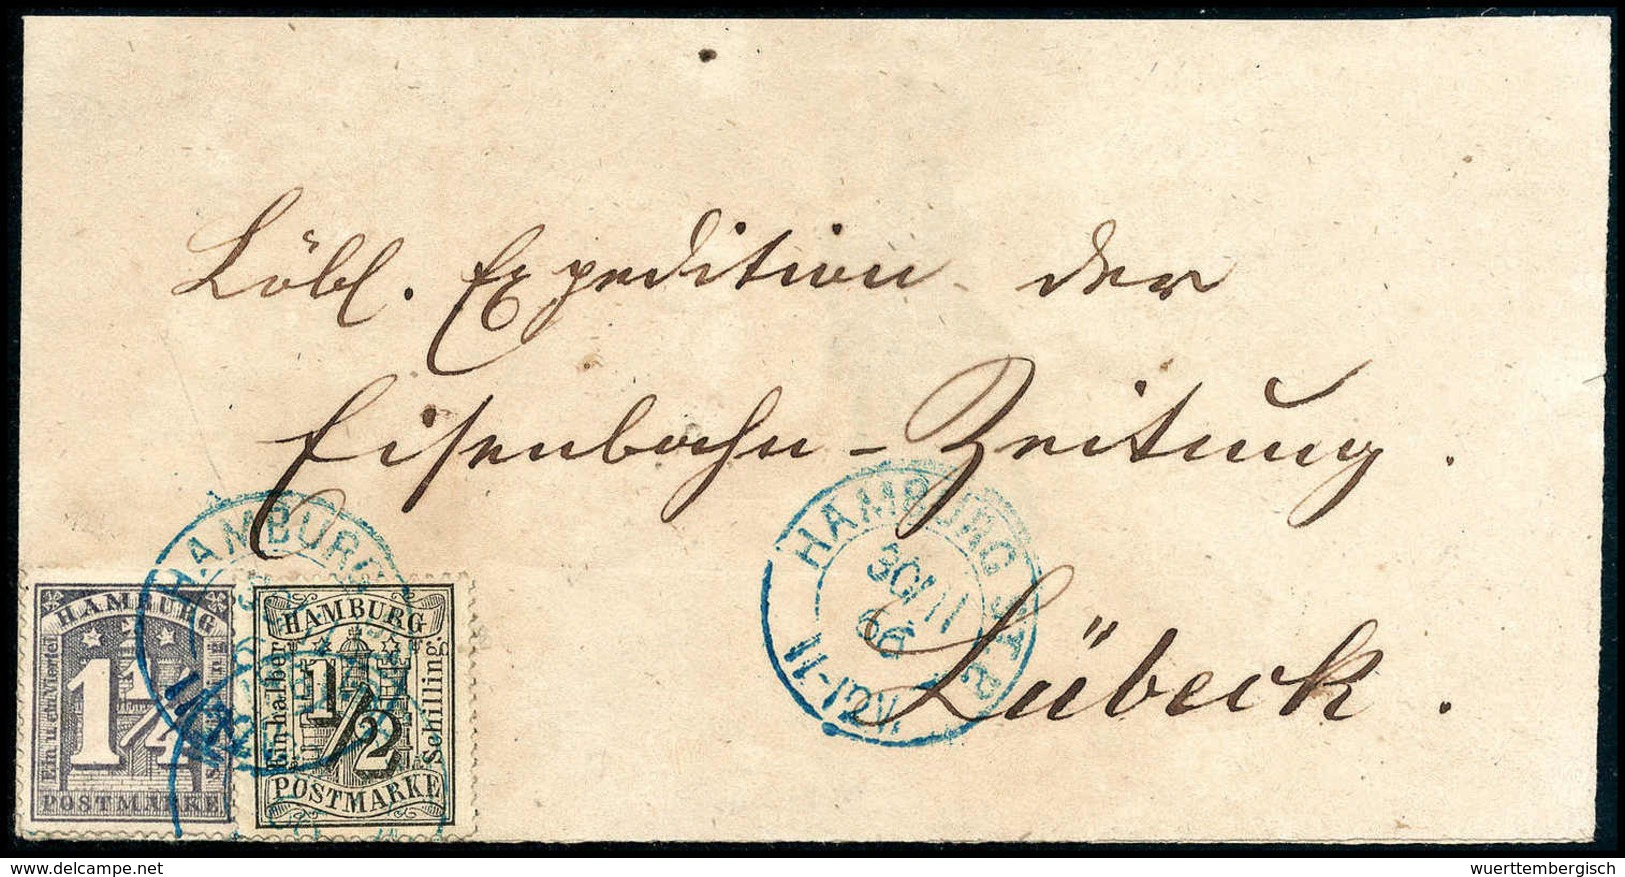 Löbl. Expedition der
Eisenbahn-Zeitung.
Lübeck.
HAMBURG ST.P.
30/11
66
HAMBURG
HAMBURG
1 1/4
POSTMARKE
HAMBURG
Ein halber
1/2
Schilling
POSTMARKE
delcampe.net
wuerttembergisch